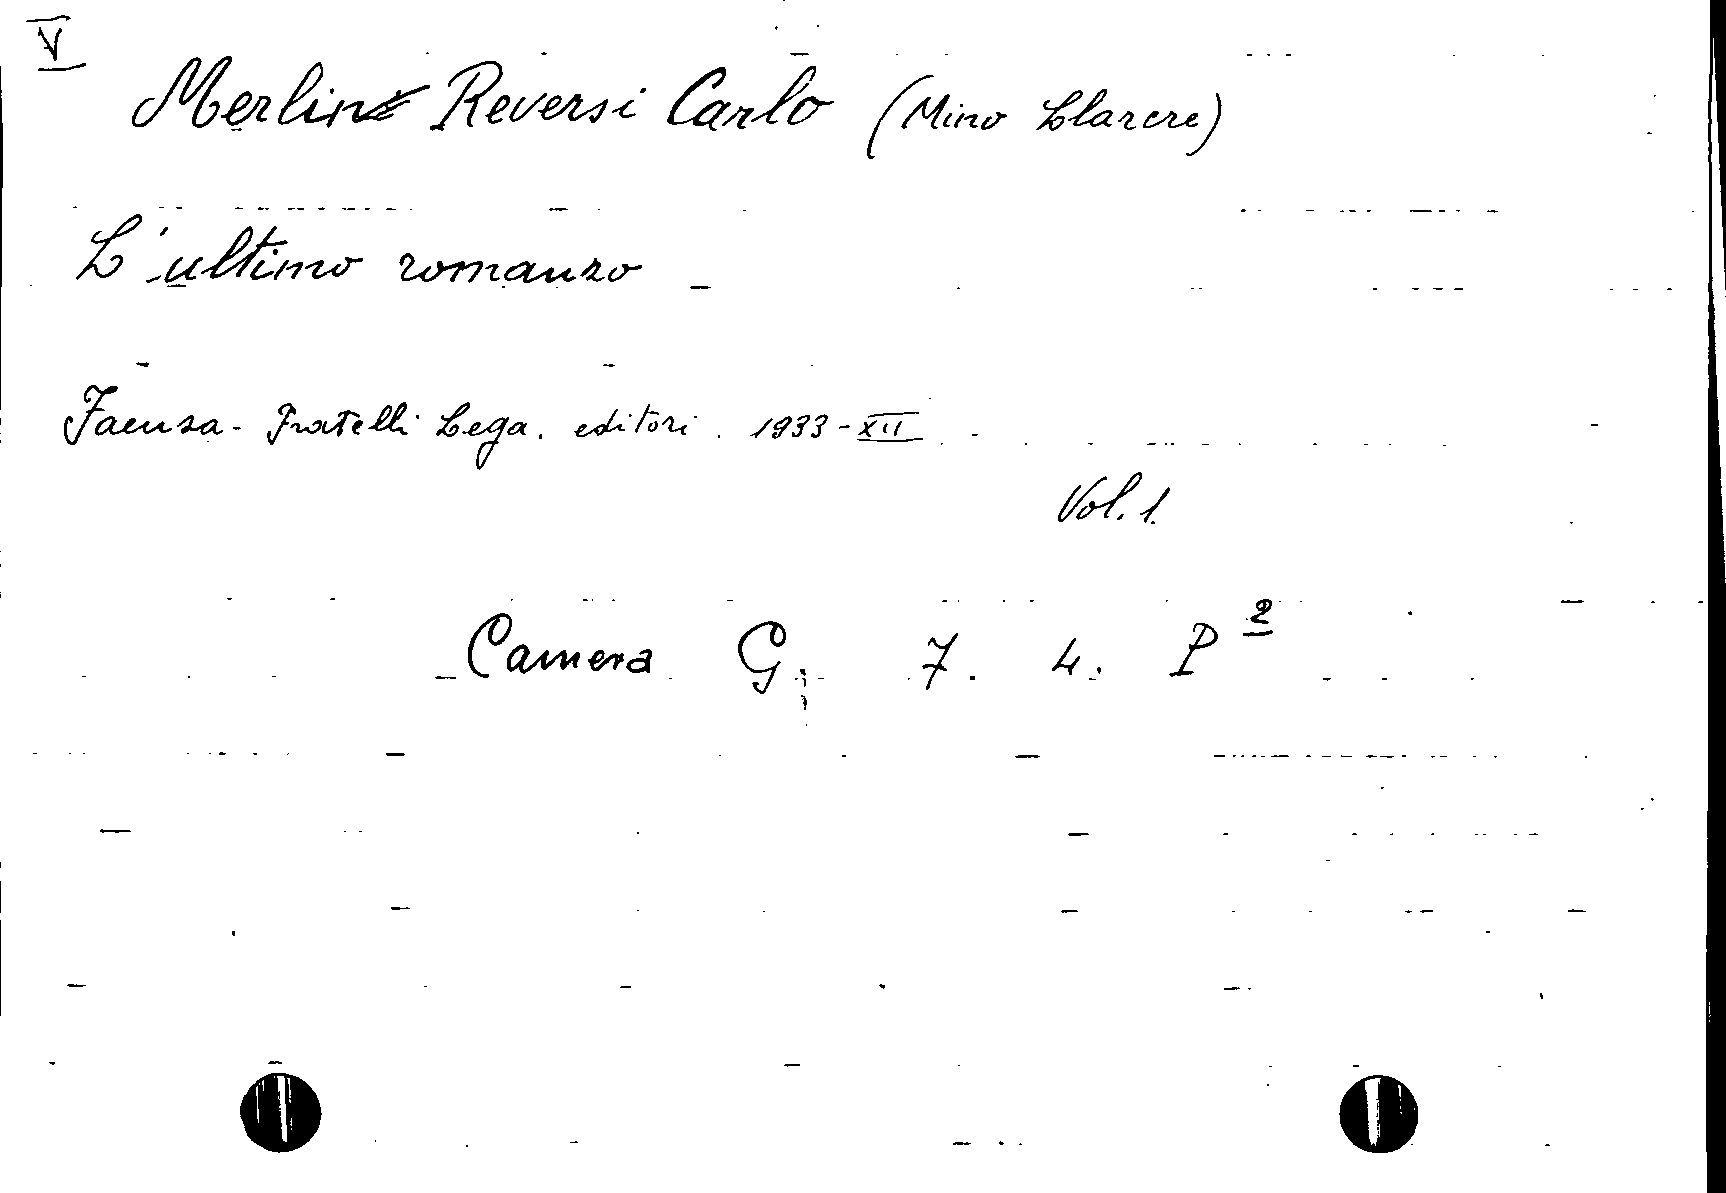 V
Merlin Reversi Carlo (Mino Llarere)
L'ultimo romanzo
Faenza - Fratelli Lega. editori. 1933 - XII
Vol. 1.
Camera G. 7. 4. P 2